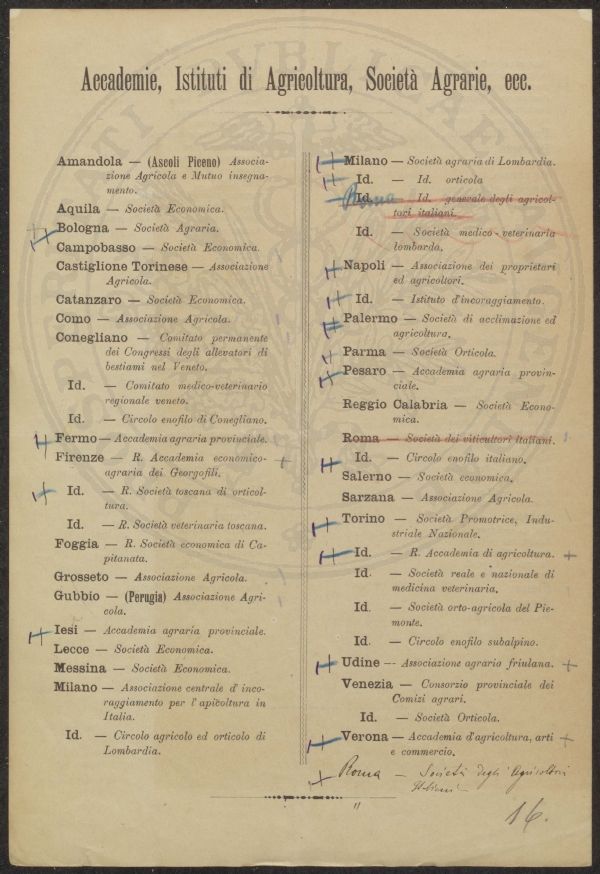 Accademie, Istituti di Agricoltura, Società Agrarie, ecc.
Amandola — (Ascoli Piceno) Associa-
zione Agricola e Mutuo insegna-
mento.
Aquila — Società Economica.
Bologna — Società Agraria.
Campobasso — Società Economica.
Castiglione Torinese — Associazione
Agricola.
Catanzaro — Società Economica.
Como — Associazione Agricola.
Conegliano — Comitato permanente
dei Congressi degli allevatori di
bestiami nel Veneto.
Id. — Comitato medico-veterinario
regionale veneto.
Id. — Circolo enofilo di Conegliano.
Fermo — Accademia agraria provinciale.
Firenze — R. Accademia economico-
agraria dei Georgofili.
Id. — R. Società toscana di orticol-
tura.
Id. — R. Società veterinaria toscana.
Foggia — R. Società economica di Ca-
pitanata.
Grosseto — Associazione Agricola.
Gubbio — (Perugia) Associazione Agri-
cola.
Iesi — Accademia agraria provinciale.
Lecce — Società Economica.
Messina — Società Economica.
Milano — Associazione centrale d'inco-
raggiamento per l'apicoltura in
Italia.
Id. — Circolo agricolo ed orticolo di
Lombardia.
Milano — Società agraria di Lombardia.
Id. — Id. orticola
Roma
Id. — Id. generale degli agricol-
tori italiani.
Id. — Società medico-veterinaria
lombarda.
Napoli — Associazione dei proprietari
ed agricoltori.
Id. — Istituto d'incoraggiamento.
Palermo — Società di acclimazione ed
agricoltura.
Parma — Società Orticola.
Pesaro — Accademia agraria provin-
ciale.
Reggio Calabria — Società Econo-
mica.
Roma — Società dei viticultori Italiani.
Id. — Circolo enofilo italiano.
Salerno — Società economica.
Sarzana — Associazione Agricola.
Torino — Società Promotrice, Indu-
striale Nazionale.
Id. — R. Accademia di agricoltura.
Id. — Società reale e nazionale di
medicina veterinaria.
Id. — Società orto-agricola del Pie-
monte.
Id. — Circolo enofilo subalpino.
Udine — Associazione agraria friulana.
Venezia — Consorzio provinciale dei
Comizi agrari.
Id. — Società Orticola.
Verona — Accademia d'agricoltura, arti
e commercio.
Roma — Società degli Agricoltori
Italiani —
16.